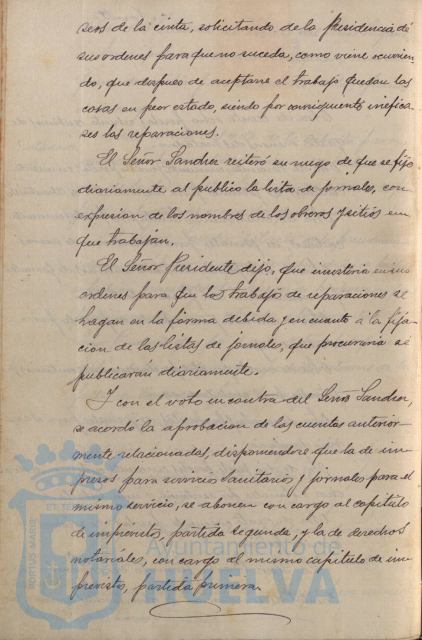 seros de la cinta, solicitando de la Presidencia dé
sus ordenes para que no suceda, como viene ocurrien
do, que despues de aceptarse el trabajo quedan las
cosas en peor estado, siendo por consiguiente inefica-
ses las reparaciones.
El Señor Sandier reiteró su ruego de que se fije
diariamente al publico la lista de jornales, con
expresion de los nombres de los obreros y sitios en
que trabajan.
El Señor Presidente dijo, que insistiria en sus
ordenes para que los trabajos de reparaciones se
hagan en la forma debida y en cuanto á la fija-
cion de las listas de jornales, que procuraria se
publicaran diariamente.
Y con el voto en contra del Señor Sandier,
se acordó la aprobacion de las cuentas anterior-
mente relacionadas, disponiendose que la de im-
presos para servicio Sanitario y jornales para el
mismo servicio, se abonen con cargo al capitulo
de imprevistos, partida segunda, y la de derechos
notariales, con cargo al mismo capitulo de im-
previstos, partida primera.
Ayuntamiento de
HUELVA
PORTUS MARIS